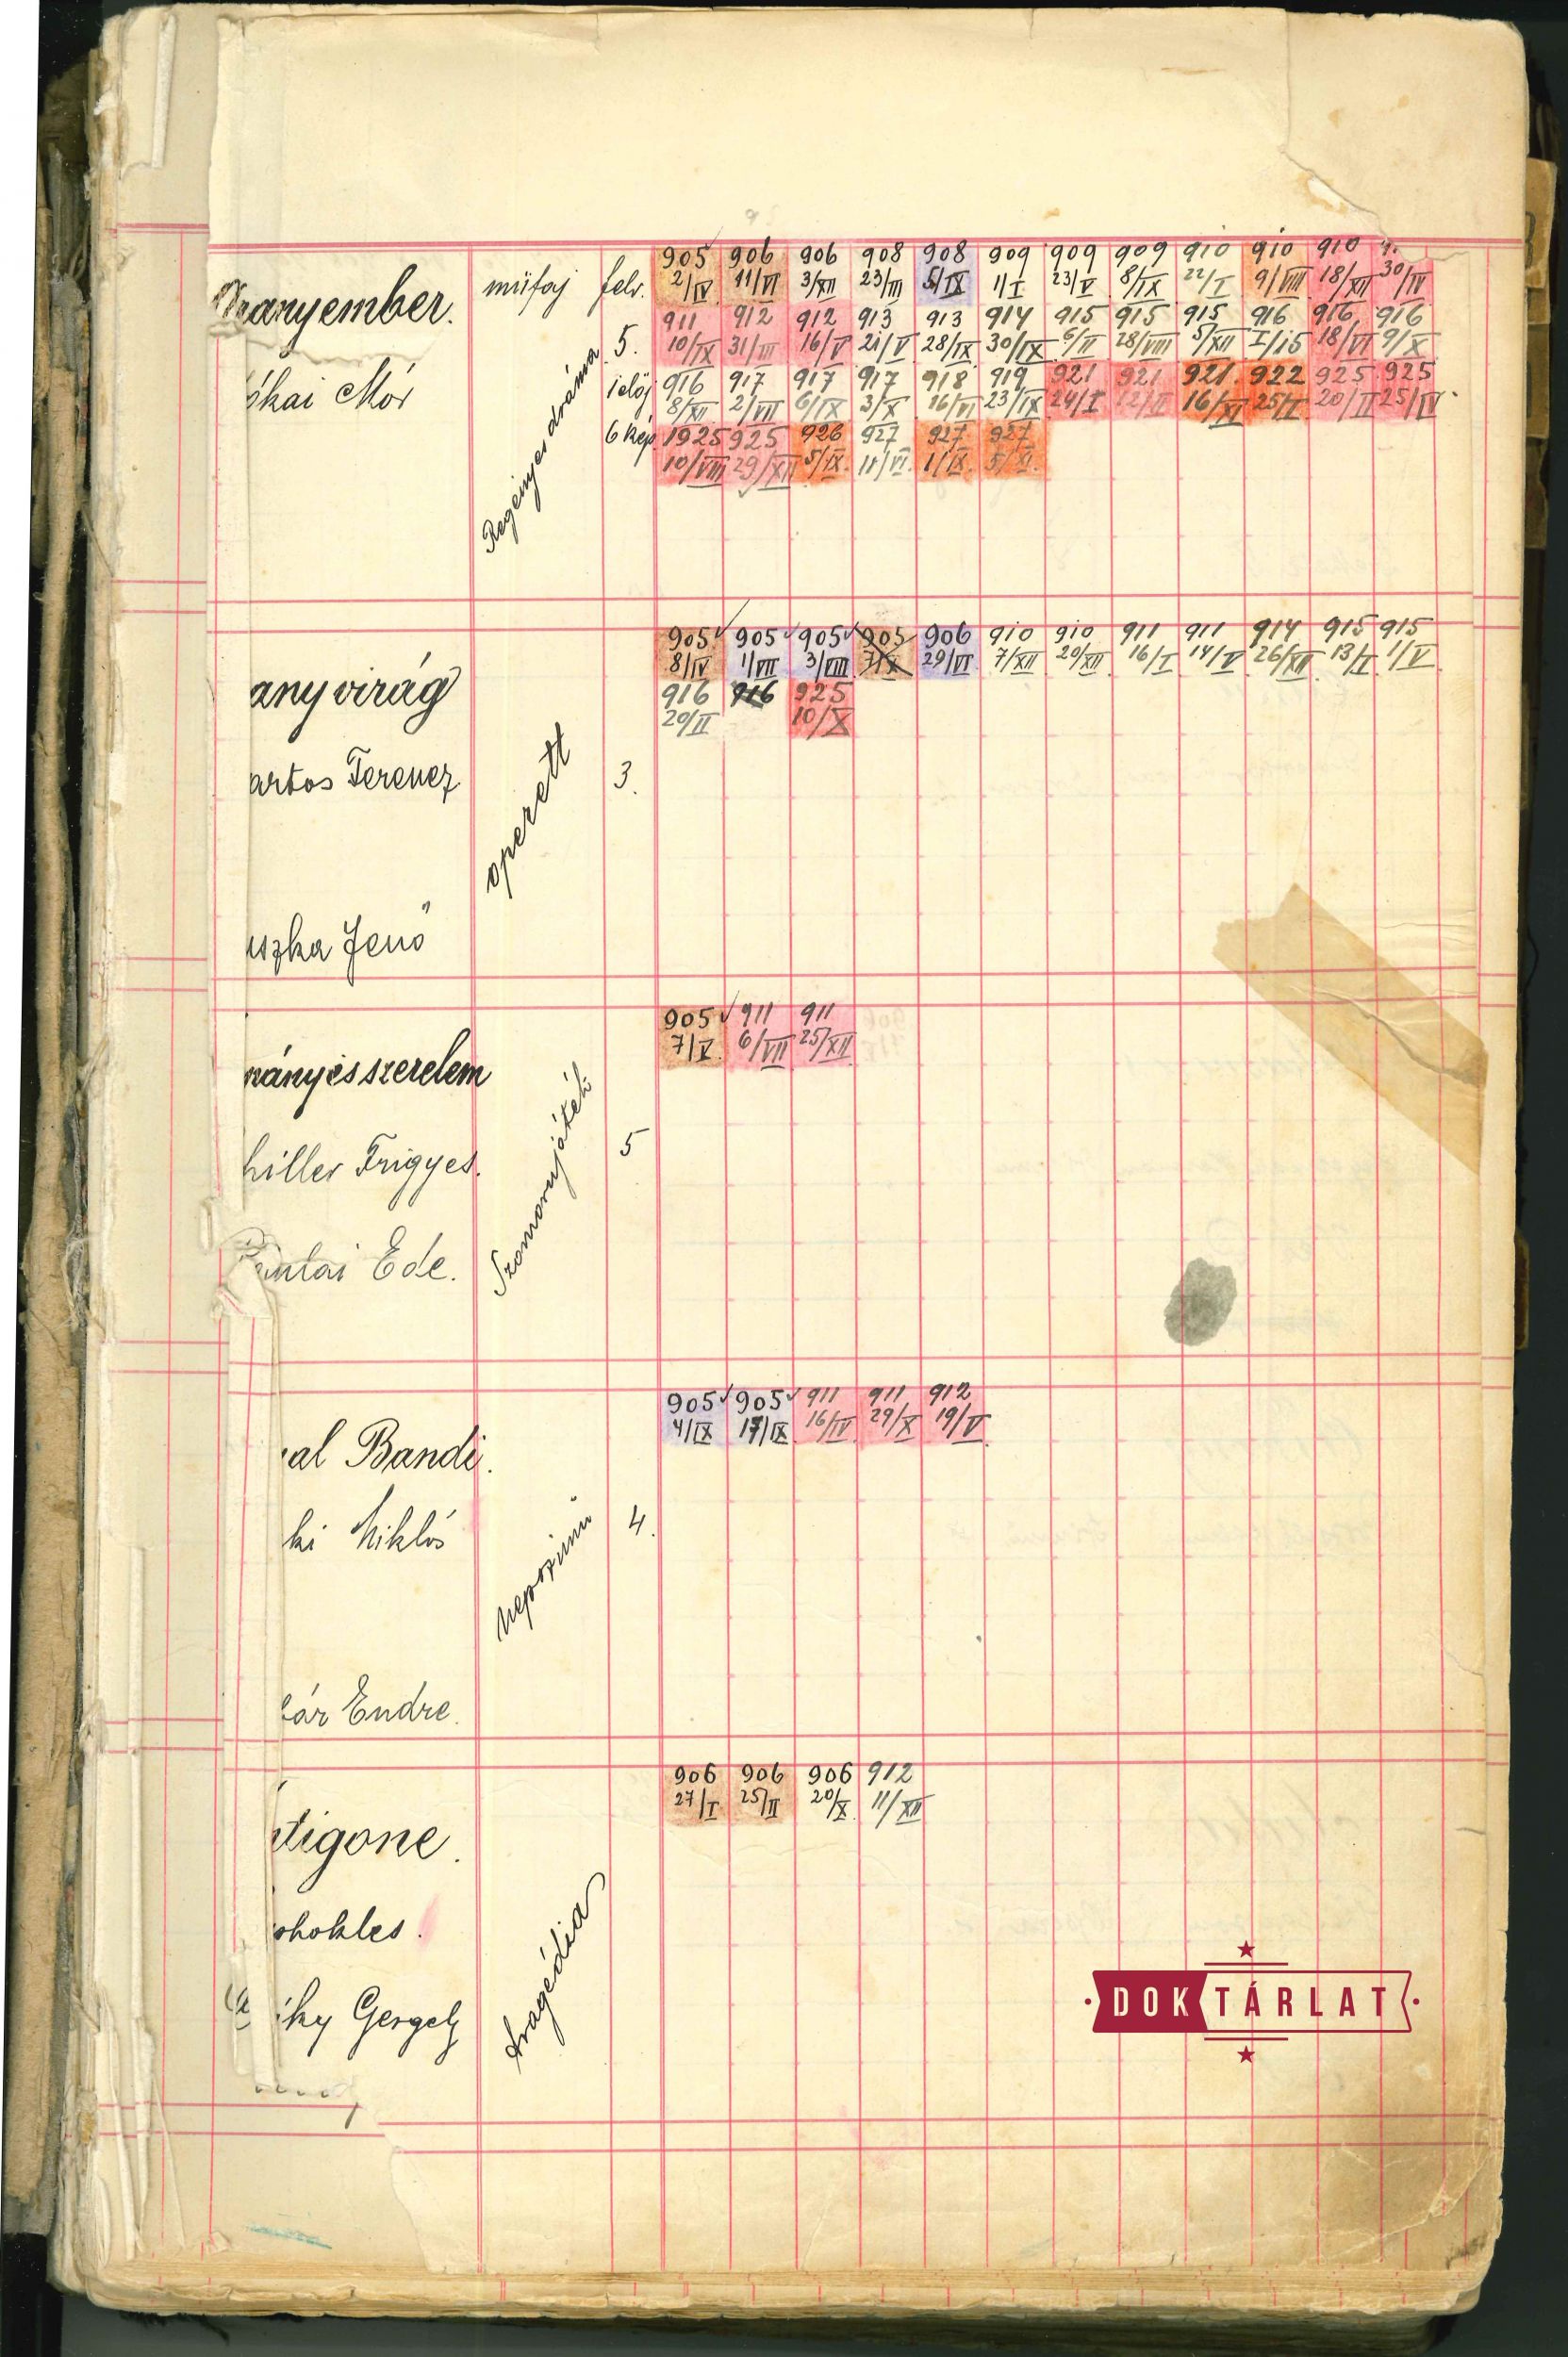 905 906 906 908 908 909 909 909 910 910 910
műfaj felv. 2/IV 11/VI 3/XII 23/III 5/IX 1/I 23/V 8/IX 22/I 9/VIII 18/XII 30/IV
Aranyember.
911 912 912 913 913 914 915 915 915 916 916 916
5. 10/IX 31/III 16/V 21/V 28/IX 30/IX 6/II 28/VIII 5/XII I/15 18/VI 9/X
Regényes dráma
ókai Mór
1 előj 916 917 917 917 918 919 921 921 921. 922 925 925
8/XII 2/VII 6/IX 3/X 16/VI 23/IX 24/I 12/II 16/XI 25/I 20/II 25/IV.
6 kép 1925 925 926 927 927 927
10/VIII 29/XII 5/IX. 11/VI. 1/IX. 5/XI.
905 905 905 905 906 910 910 911 911 914 915 915
8/IV 1/VII 3/VIII 7/IX 29/VI 7/XII 20/XII 16/I 14/V 26/XII 13/I 1/V
any virág
916 916 925
20/II 10/X
artos Ferencz
operett
3.
uszka Jenő
905 911 911
7/V 6/VII 25/XII
mány és szerelem
hiller Frigyes.
Szomorujáték
5
Ede.
905 905 911 911 912
4/IX 17/IX 16/IV 29/X 19/V
al Bandi.
ki Miklós
Népszinmü
4.
ár Endre.
906 906 906 912
27/I 25/II 20/X 11/XII
tigone.
phokles.
tragédia
iky Gergely
DOKTÁRLAT